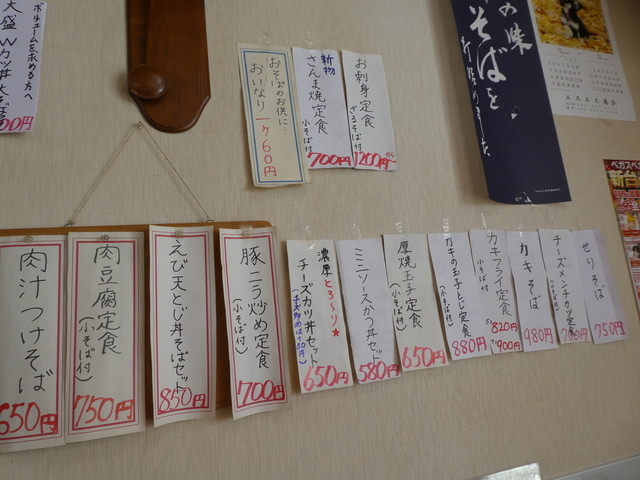 ボリュームを求める方へ
大盛Wカツ丼
00円
おそばのお供に…
おいなり 一ケ60円
新物
さんま焼定食
小そば付
700円
お刺身定食
ざるそば付
1200円
の味
そばを
新台
肉汁つけそば
650円
肉豆腐定食
(小そば付)
750円
えび天とじ丼そばセット
850円
豚ニラ炒め定食
(小そば付)
700円
濃厚とろ〜り★
チーズカツ丼セット
650円
ミニソースかつ丼セット
580円
厚焼玉子定食
(小そば付)
650円
カキの玉子とじ定食
(小そば付)
880円
カキフライ定食
小そば付
820円
900円
カキそば
980円
チーズメンチカツ定食
せりそば
750円